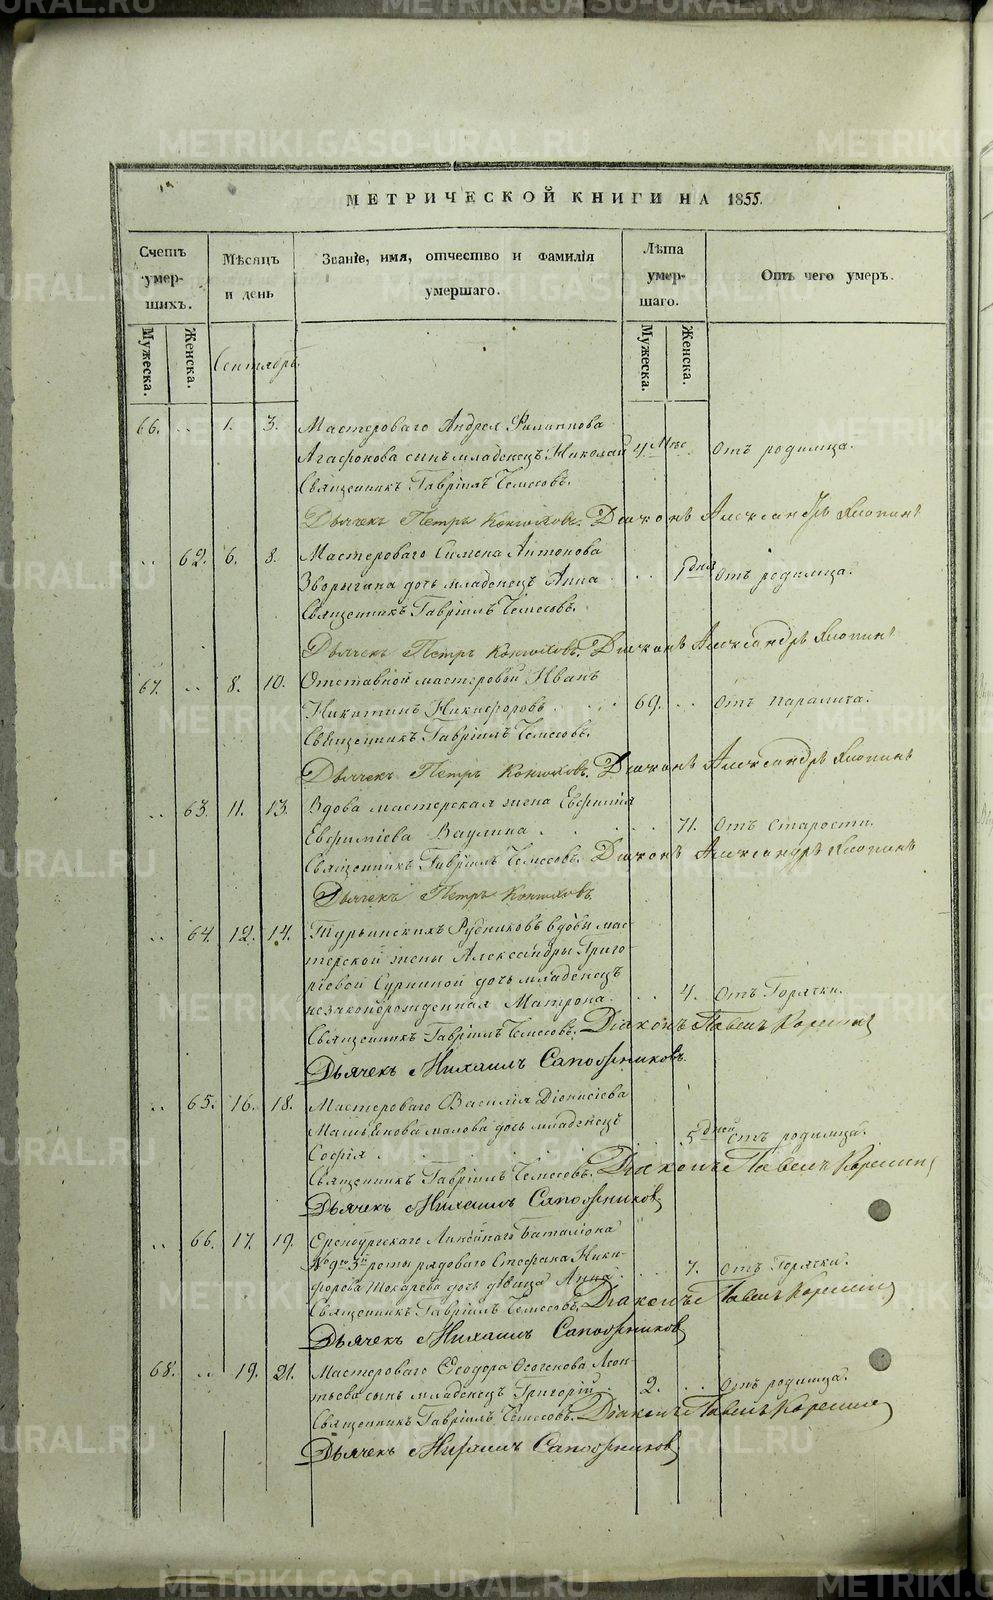 МЕТРИЧЕСКОЙ КНИГИ НА 1855.
Счетъ умершихъ. Мѣсяцъ и день Званіе, имя, отчество и фамилія умершаго. Лѣта умершаго. Отъ чего умеръ.
Мужеска. Женска. Мужеска. Женска.
Сентябрь.
66. .. 1. 3. Мастероваго Андрея Филиппова
Агафонова сынъ младенецъ Николай 4 Мѣс. Отъ родимца.
Священникъ Гавріилъ
Дьячекъ Петръ Конюховъ. Діаконъ Александръ
.. 62. 6. 8. Мастероваго Симона Антонова
Зворыгина дочь младенецъ Анна .. дня Отъ родимца.
Священникъ Гавріилъ
Дьячекъ Петръ Конюховъ. Діаконъ Александръ
67. .. 8. 10. Отставной мастеровой Иванъ
Никитинъ Никифоровъ 69. .. Отъ паралича.
Священникъ Гавріилъ
Дьячекъ Петръ Конюховъ. Діаконъ Александръ
.. 63. 11. 13. Вдова мастерская жена Евфимія
Евфиміева Ваулина 71. Отъ Старости.
Священникъ Гавріилъ Діаконъ Александръ
Дьячекъ Петръ Конюховъ.
.. 64. 12. 14. Турьинскихъ Рудниковъ вдовы мас-
терской жены Александры Григо-
ріевой Суриной дочь младенецъ
незаконорожденная Матрона. .. 4. Отъ Горячки.
Священникъ Гавріилъ Діаконъ Павелъ
Дьячекъ Михаилъ Сапожниковъ.
.. 65. 16. 18. Мастероваго Василія Діонисіева
малова дочь младенецъ
Софія 5 дней отъ родимца.
Священникъ Гавріилъ Діаконъ Павелъ
Дьячекъ Михаилъ Сапожниковъ
.. 66. 17. 19. Оренбургскаго Линейнаго Баталіона
№ 9го 3й роты рядоваго Стефана Ники-
форова Токарева дочь дѣвица Анна 7. отъ Горячки.
Священникъ Гавріилъ Діаконъ Павелъ
Дьячекъ Михаилъ Сапожниковъ
68. .. 19. 21. Мастероваго Ѳеодора Леон-
тьева сынъ младенецъ Григорій 2. .. Отъ родимца.
Священникъ Гавріилъ Діаконъ Павелъ
Дьячекъ Михаилъ Сапожниковъ
METRIKI.GASO-URAL.RU